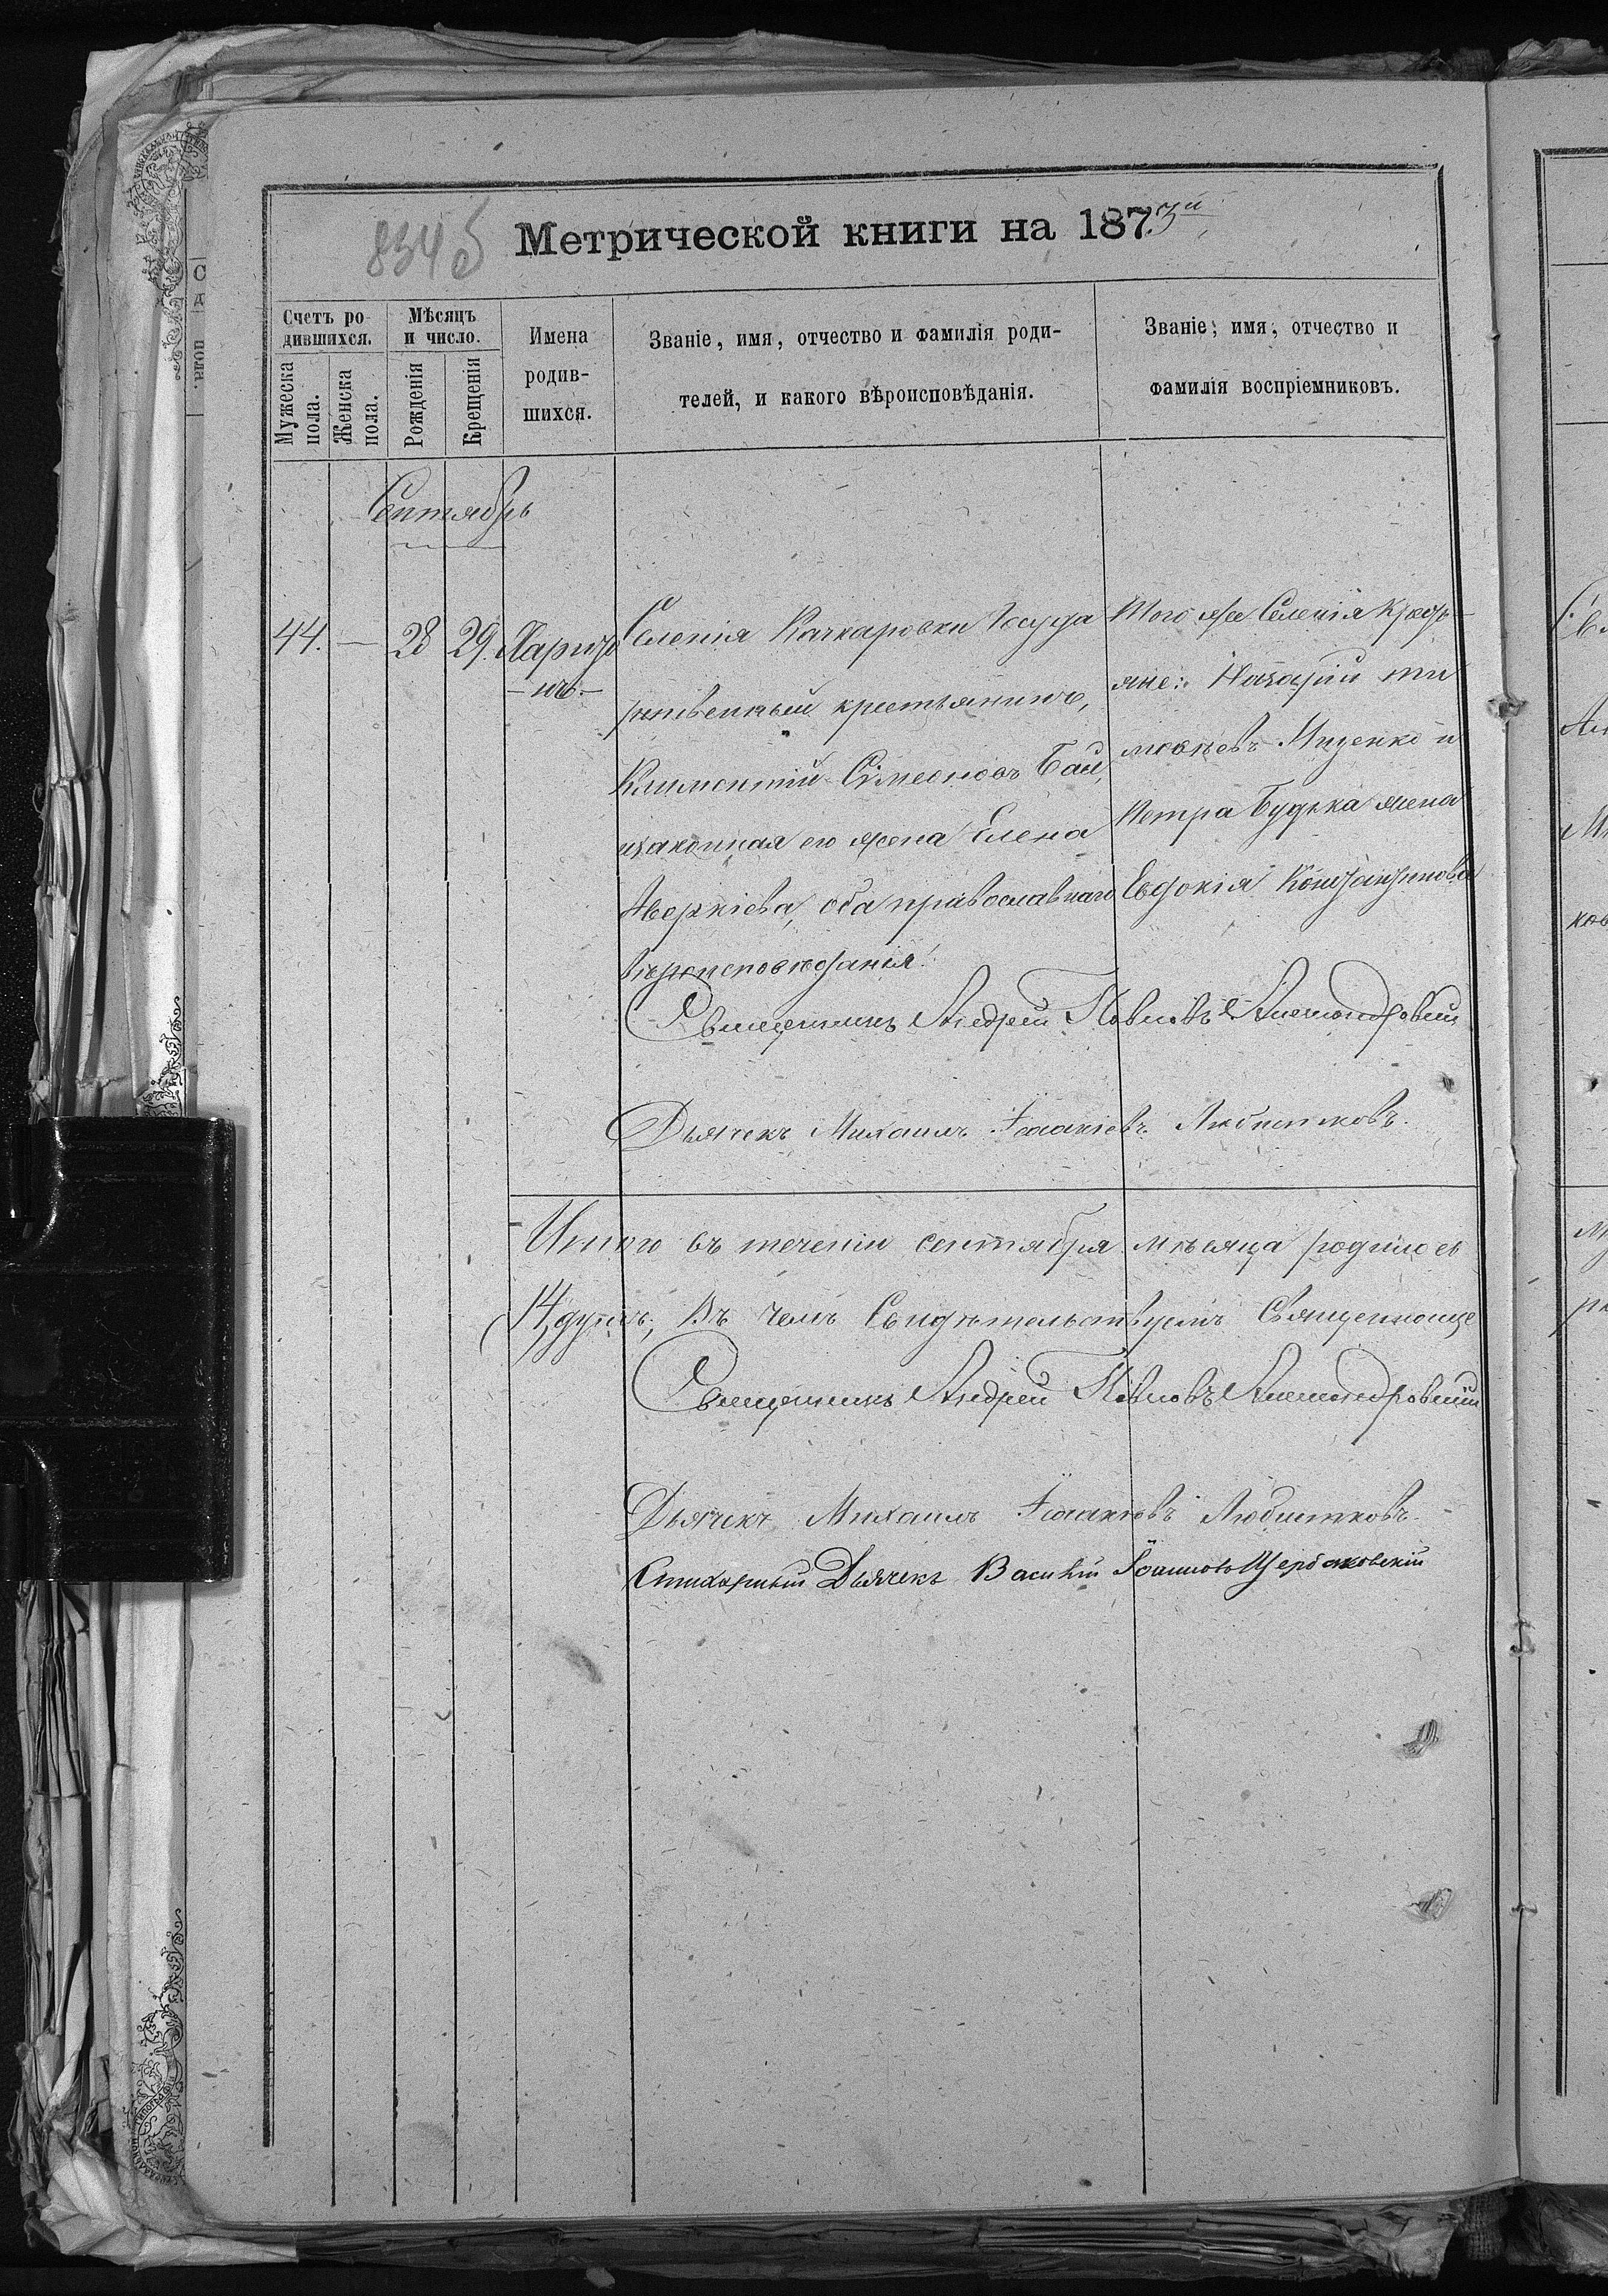 834 об
Метрической книги на 1873й
Счетъ ро-
дившихся.
Мужеска
пола.
Женска
пола.
Мѣсяцъ
и число.
Рожденія
Крещенія
Имена
родив-
шихся.
Званіе, имя, отчество и фамилія роди-
телей, и какого вѣроисповѣданія.
Званіе, имя, отчество и
фамилія воспріемниковъ.
Сентябрь
44. — 28 29. Харито
-нъ-
Селенія Качкаровки Госуда
рственный крестьянинъ,
Климентій Сѵмеоновъ Бай,
изаконная его жена Елена
Аверкіева, оба православнаго
вѣроисповѣданія.
Того же Селенія Крестъ
яне: Назарій ти
моѳеевъ Мизенко и
Петра Будька жена
Евдокія Константинова
Священникъ Андрей Павловъ Александровскій
Дьячекъ Михаилъ Исаакіевъ Любитковъ.
Итого въ теченіи сентября мѣсяца родилось
14 душъ; Въ чемъ Свидѣтельствуемъ
Священникъ Андрей Павловъ Александровскій
Дьячекъ Михаилъ Исаакіевъ Любитковъ.
Стихарный Дьячекъ Василій Іоанновъ Щербаковскій